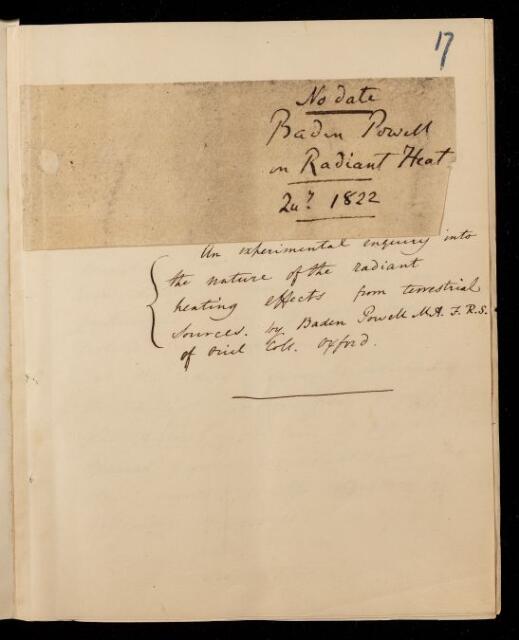 17
No date
Baden Powell
on Radiant Heat
Qu? 1822
An experimental enquiry into
the nature of the radiant
heating effects from terrestrial
sources. by Baden Powell M.A. F.R.S.
of Oriel Coll. Oxford.